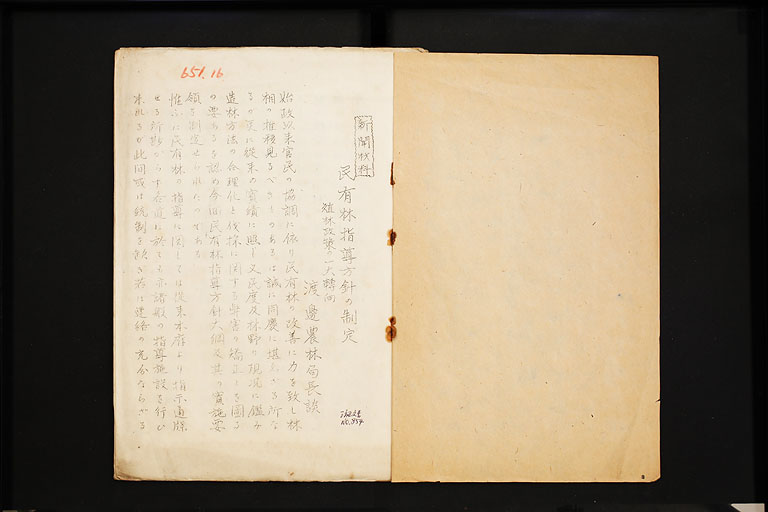 651.16
新聞材料
民有林指導方針の制定
殖林政策の一大轉向
渡邊農林局長談
始政以来官民の協調に依り民有林の改善に力を致し林
相の推移見るべきものあるは誠に同慶に堪えざる所な
るが更に従来の實績に照し又民度及林野の現況に鑑み
造林方法の合理化と伐採に関する弊害の矯正とを圖る
の要あるを認め今回民有林指導方針大綱及其の實施要
領を制定せられたのである
惟ふに民有林の指導に関しては従来本府より指示通牒
せる所尠からず各道に於ても亦諸般の指導施設を行ひ
来れるが此間或は統制を缺き若は連絡の充分ならざる
NO.954